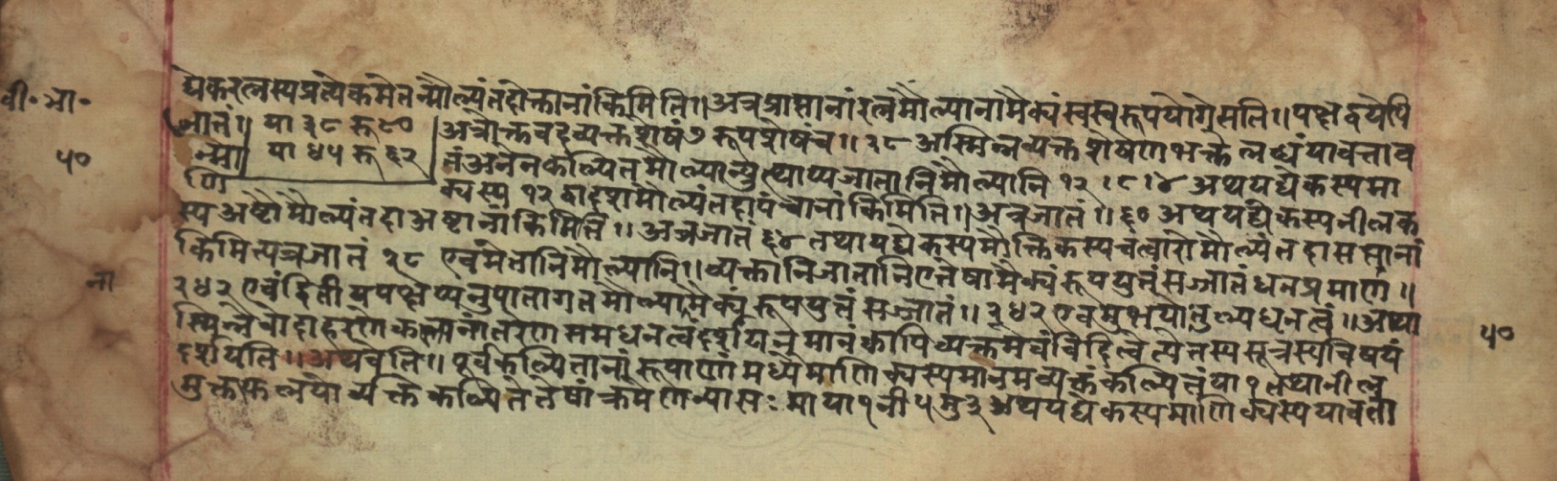 वी. भा.
५०
द्येकरत्नस्यप्रत्येकमेतन्मौल्यंतदोक्तानांकिमिति॥अत्रप्राप्तानांरत्नमौल्यानामैक्यंस्वस्वरूपयोगेसति॥पक्षद्वयेपि
जातं॥ या ३८ रू ८० अत्रोक्तवदव्यक्तशेषं७ रूपशेषंच॥ २८ अस्मिन्नव्यक्तशेषेणभक्तेलब्धंयावत्ताव
न्मा॥ या ४५ रू ६२ तंअनेनकल्पितमौल्यान्युत्थाप्यजातानिमौल्यानि १२।८।४ अथयद्येकस्यमा
णि क्यस्य १२ द्वादशमौल्यंतदापंचानांकिमिति॥अत्रजातं॥६० अथयद्येकस्यनीलक
स्य अष्टौमौल्यंतदाअष्टानांकिमिति॥अत्रजातं ६४ तथायद्येकस्यमौक्तिकस्यचत्वारोमौल्यंतदासप्तानां
किमित्यत्रजातं २८ एवमेतानिमौल्यानि॥व्यक्तानिजातानिएतेषामैक्यंरूपयुतंसजातंधनप्रमाणं॥
२४२ एवंद्वितीयपक्षेप्यनुपातागतमौल्यामैक्यंरूपयुतंसञ्जातं॥२४२ एवमुभयोतुल्यधनत्वं॥अथा
स्मिन्नेवोदाहरणेकल्पनांतरेणसमधनत्वंदर्शयन्मानंक्वापिव्यक्तमेवंविदित्वेत्येतस्यसूत्रस्यविषयं
दर्शयति॥अथवेति॥पूर्वकल्पितानांरूपाणांमध्येमाणिक्यस्यमानमव्यक्तंकल्पितंया १ तथानील
मुक्ताफलयोव्यक्तेकल्पितेतेषांक्रमेणन्यासः मा या१ नी५ मु३ अथयद्येकस्यमाणिक्यस्ययावत्ता
५०